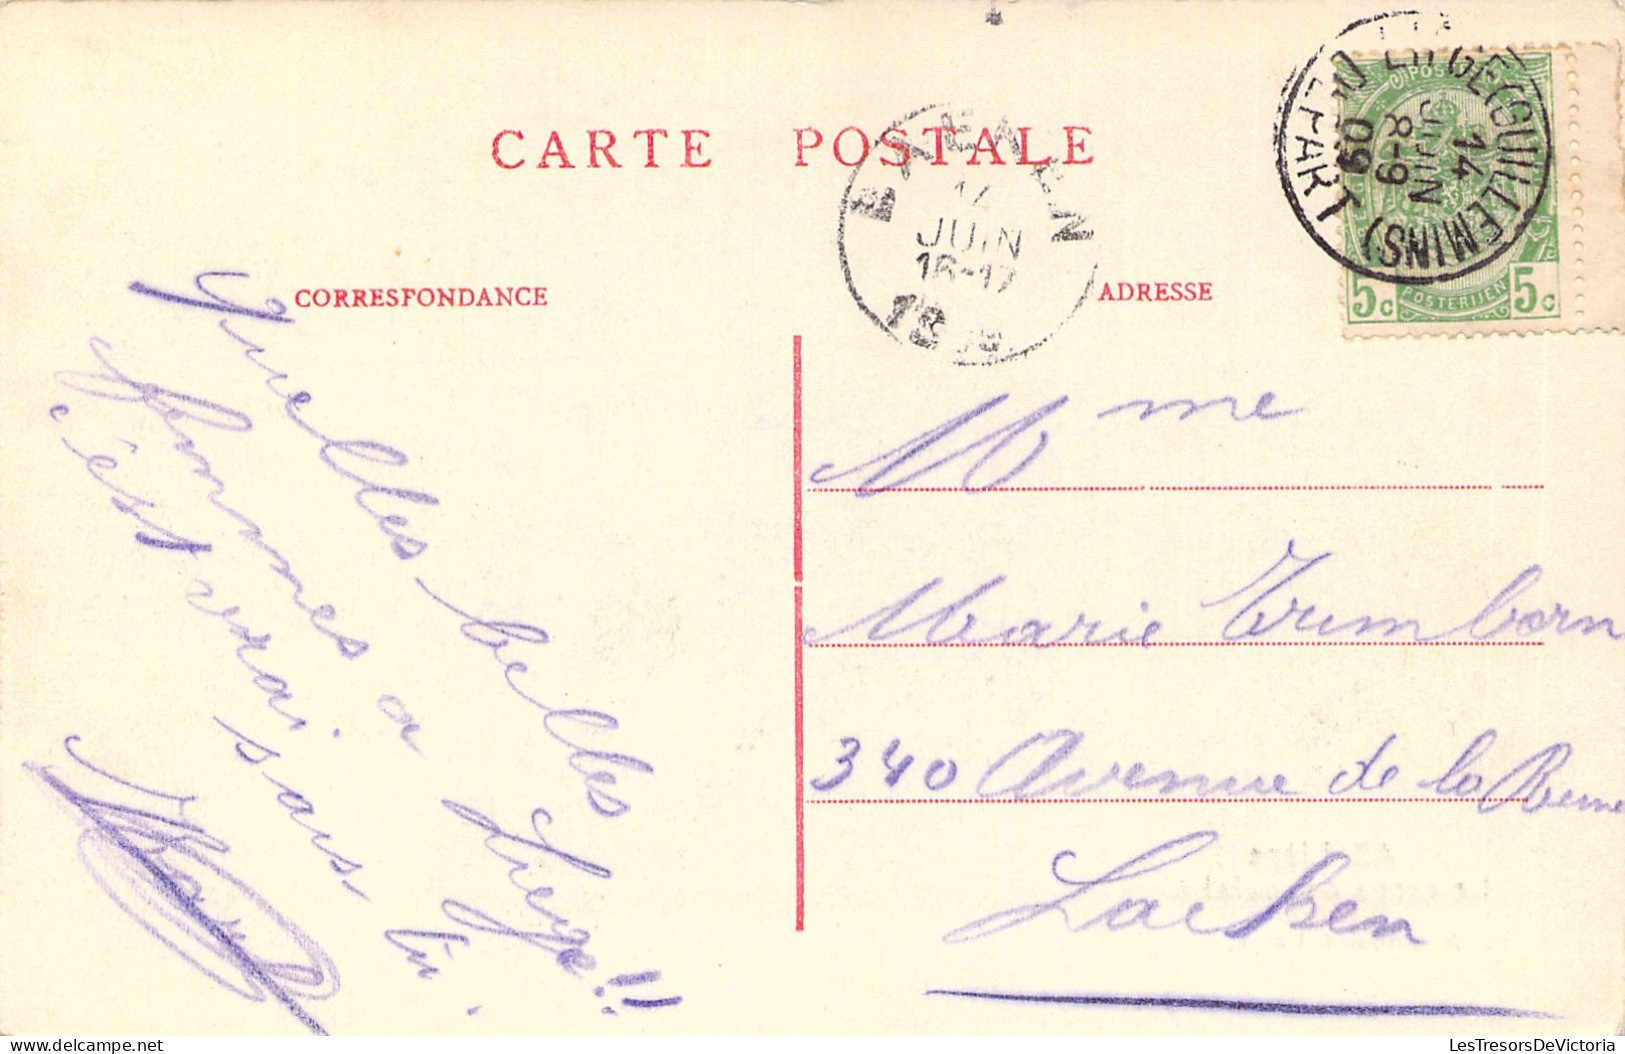 CARTE POSTALE
CORRESPONDANCE
ADRESSE
LIEGE (GUILLEMINS)
DEPART
14
JUIN
8-9
09
POSTERIJEN
5c 5c
LAEKEN
14
JUIN
16-17
19
Quelles belles
femmes a Liege!!
c'est vrai sais-tu.
Mme
Marie Trumborn
340 Avenue de la Reine
Laeken
LesTresorsDeVictoria